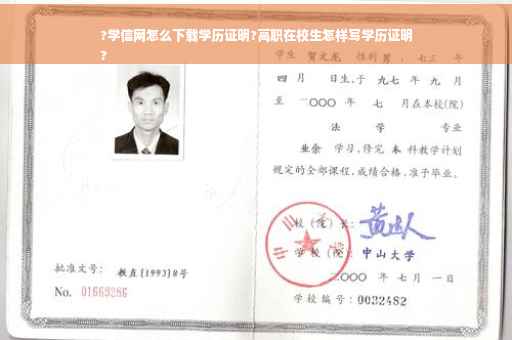 ?学信网怎么下载学历证明?高职在校生怎样写学历证明
?
学生 贺文龙 性别男，七三 年
四月 日生,于 九七 年 九 月
至 二〇〇〇 年 七 月在本校(院)
法 学 专业
业余 学习,修完 本 科教学计划
规定的全部课程,成绩合格,准予毕业。
校(院)长:
学校(院): 中山大学
二〇〇〇 年 七 月 一 日
批准文号: 教直(1993)8号
No. 01669286
学校编号: 0032482